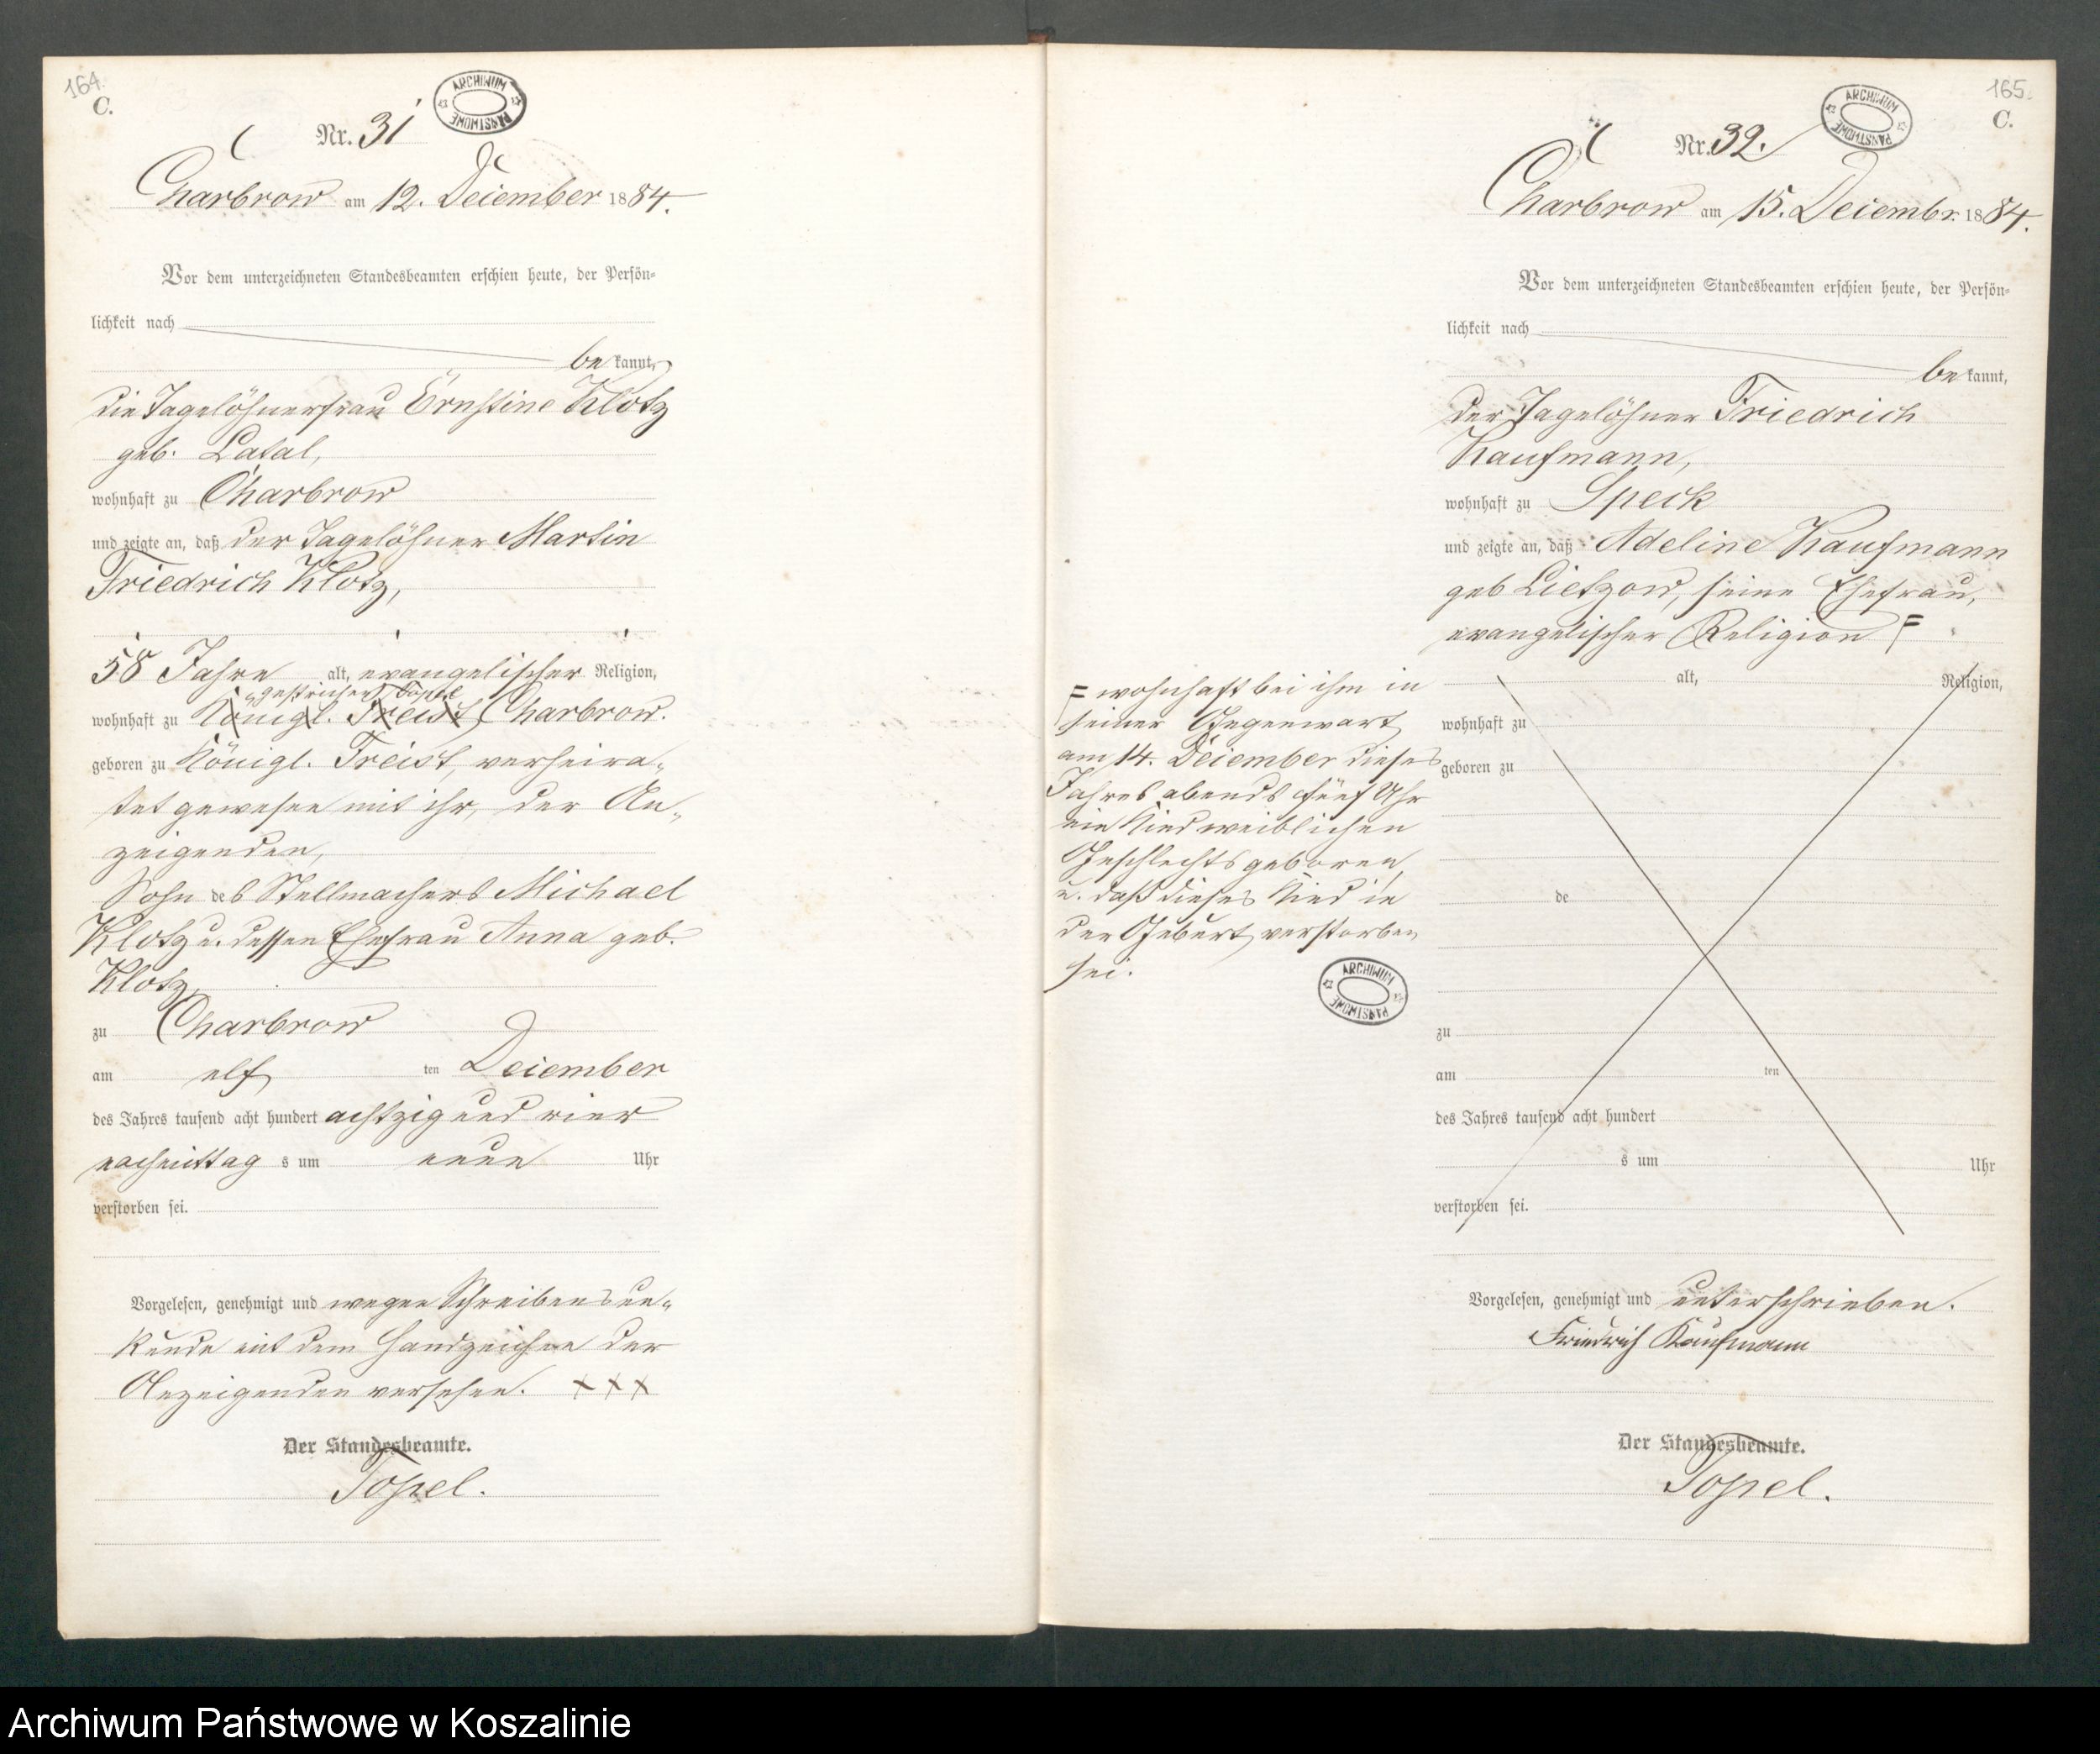 164.
C.
ARCHIWUM PAŃSTWOWE
Nr. 31
Charbrow am 12. December 1884.
Vor dem unterzeichneten Standesbeamten erschien heute, der Persön-
lichkeit nach
be kannt,
die Tagelöhnerfrau Ernstine Klotz
geb. Latal,
wohnhaft zu Charbrow
und zeigte an, daß der Tagelöhner Martin
Friedrich Klotz,
58 Jahre alt, evangelischer Religion,
gestrichen Topel
wohnhaft zu Königl. Freist Charbrow.
geboren zu Königl. Freist, verheira-
tet gewesen mit ihr, der An-
zeigenden,
Sohn des Stellmachers Michael
Klotz u. dessen Ehefrau Anna geb.
Klotz,
zu Charbrow
am elf ten December
des Jahres tausend acht hundert achtzig und vier
nachmittag s um neun Uhr
verstorben sei.
Vorgelesen, genehmigt und wegen Schreibensun-
kunde mit dem Handzeichen der
Anzeigenden versehen. +++
Der Standesbeamte.
Topel.
165.
C.
ARCHIWUM PAŃSTWOWE
Nr. 32.
Charbrow am 15. Decembr. 1884.
Vor dem unterzeichneten Standesbeamten erschien heute, der Persön-
lichkeit nach
be kannt,
der Tagelöhner Friedrich
Kaufmann,
wohnhaft zu Speck
und zeigte an, daß Adeline Kaufmann
geb Lietzow, seine Ehefrau,
evangelischer Religion F
F wohnhaft bei ihm in
seiner Gegenwart
am 14. December dieses
Jahres abends fünf Uhr
ein Kind weiblichen
Geschlechts geboren,
u. daß dieses Kind in
der Geburt verstorben
sei.
ARCHIWUM PAŃSTWOWE
alt, Religion,
wohnhaft zu
geboren zu
de
zu
am ten
des Jahres tausend acht hundert
s um Uhr
verstorben sei.
Vorgelesen, genehmigt und unterschrieben.
Friedrich Kaufmann
Der Standesbeamte.
Topel.
Archiwum Państwowe w Koszalinie